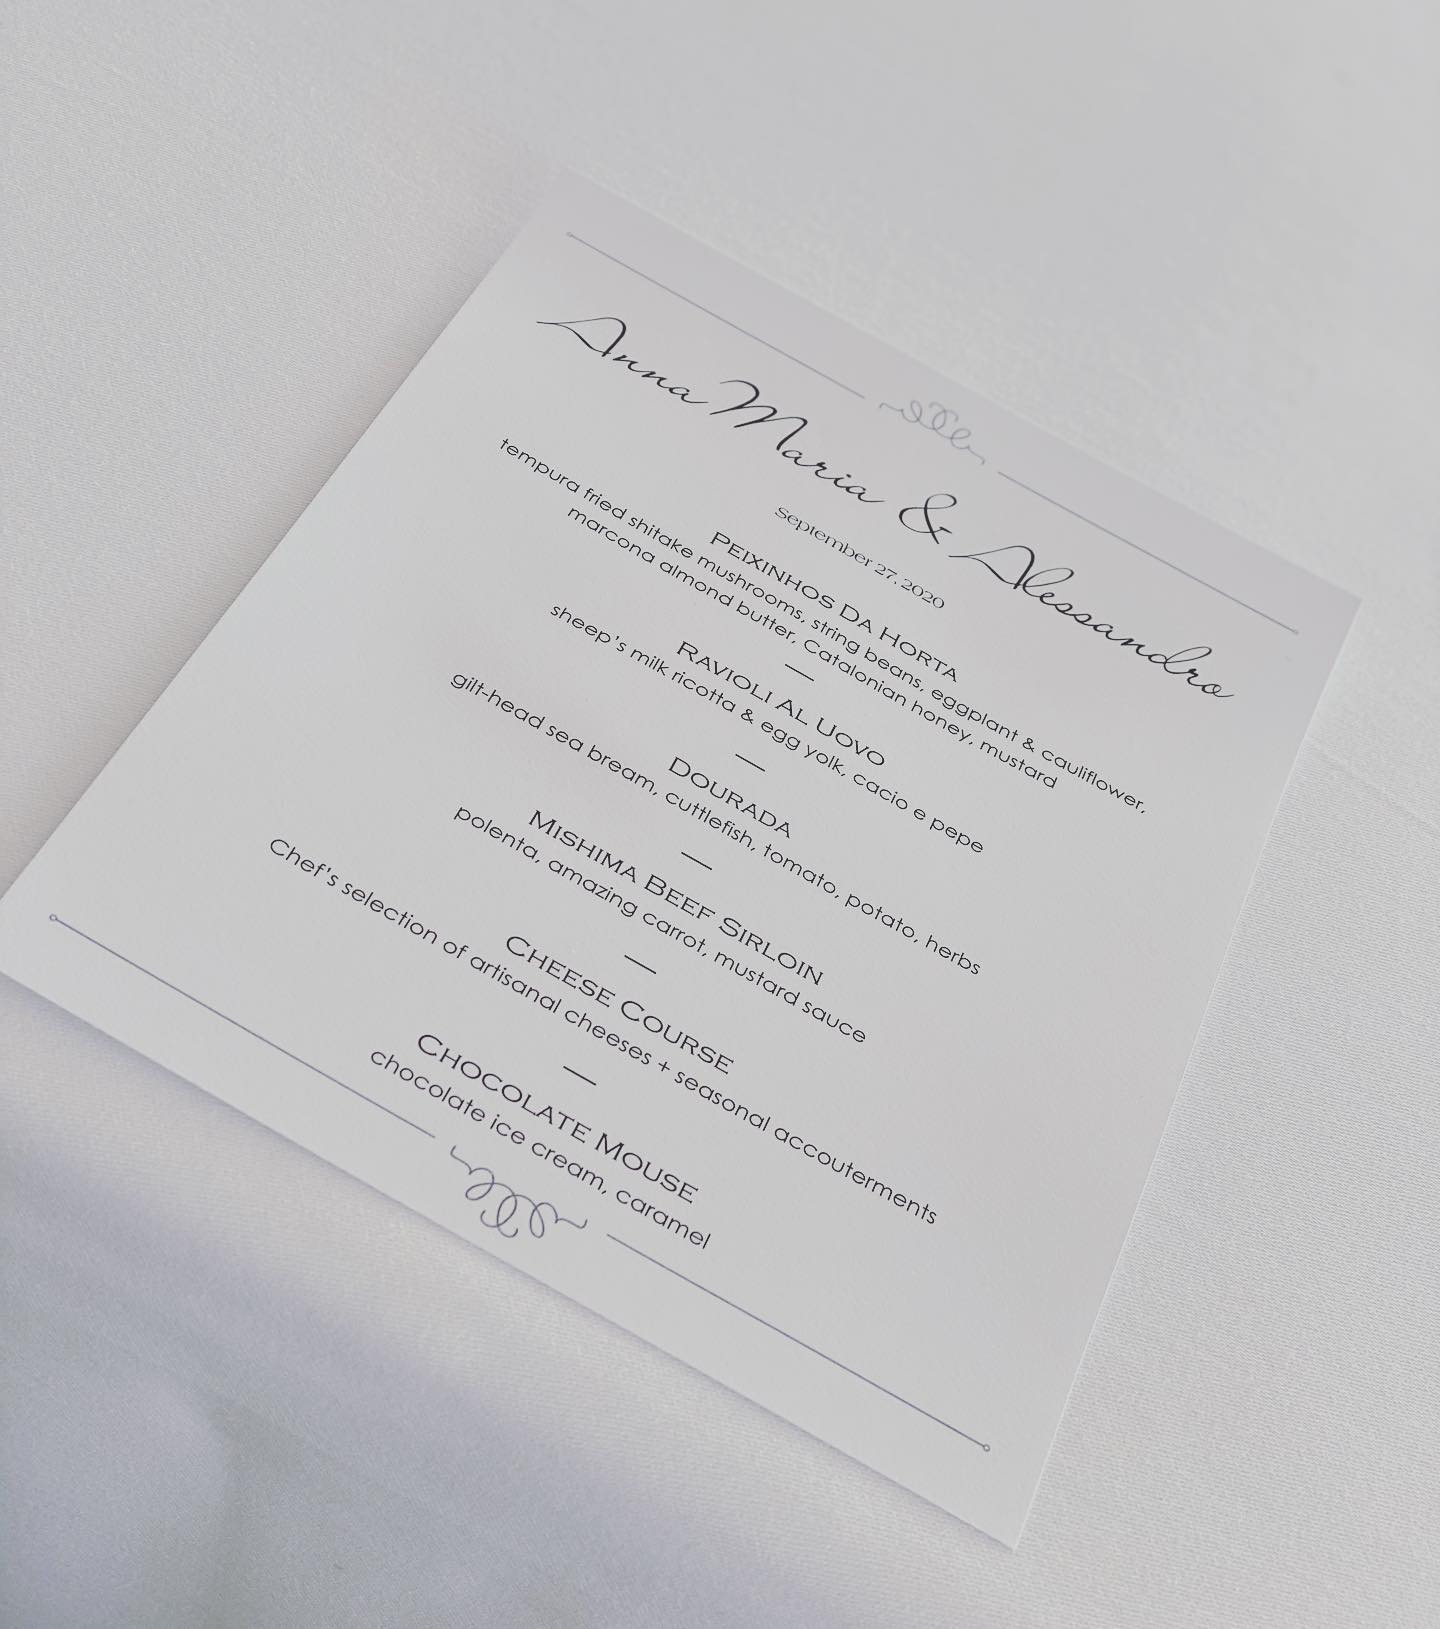 Anna Maria & Alessandro
September 27, 2020
PEIXINHOS DA HORTA
tempura fried shitake mushrooms, string beans, eggplant & cauliflower,
marcona almond butter, Catalonian honey, mustard
—
RAVIOLI AL UOVO
sheep's milk ricotta & egg yolk, cacio e pepe
—
DOURADA
gilt-head sea bream, cuttlefish, tomato, potato, herbs
—
MISHIMA BEEF SIRLOIN
polenta, amazing carrot, mustard sauce
—
CHEESE COURSE
Chef's selection of artisanal cheeses + seasonal accouterments
—
CHOCOLATE MOUSE
chocolate ice cream, caramel